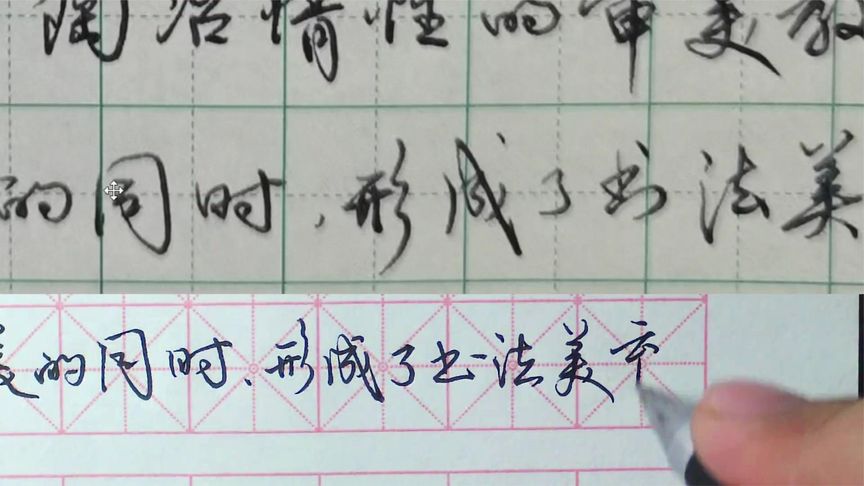 陶冶情性的审美教
的同时，形成了书法美
的同时、形成了书法美